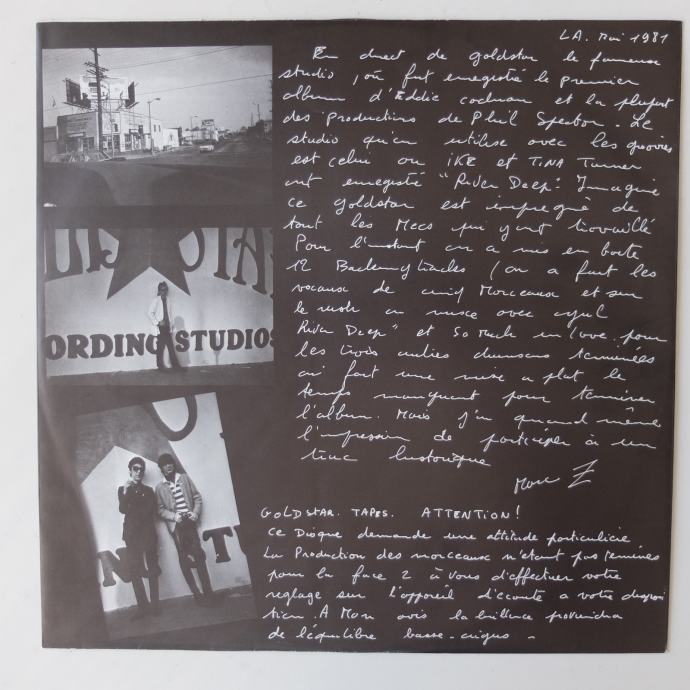 LA. Mai 1981
En direct de goldstar le fameuse
studio, où fut enregistré le premier
album d'Eddie cochran et la plupart
des Productions de Phil Spector. Le
studio qu'on utilise avec les groovies
est celui ou IKE et TINA Turner
ont enregistré "River Deep". Imagine
ce goldstar est impregné de
tout les Mecs qui y ont travaillé
Pour l'instant on a mis en boite
12 Backing tracks (on a fait les
vocaux de cinq Morceaux et sur
le reste on mixe avec
River Deep" et So Much in love. pour
les trois autres chansons terminées
on fait une mise a plat le
temps manquant pour terminer
l'album. Mais j'ai quand même
l'impression de participer à un
truc historique
Marc Z
GOLDSTAR. TAPES. ATTENTION!
Ce Disque demande une attitude particulière
La Production des morceaux n'étant pas terminés
pour la face 2 à vous d'effectuer votre
reglage sur l'appareil d'écoute a votre disposi
tion. A Mon avis la brillence proviendra
de l'équilibre basse-aigus -
LD STAR
ORDING STUDIOS